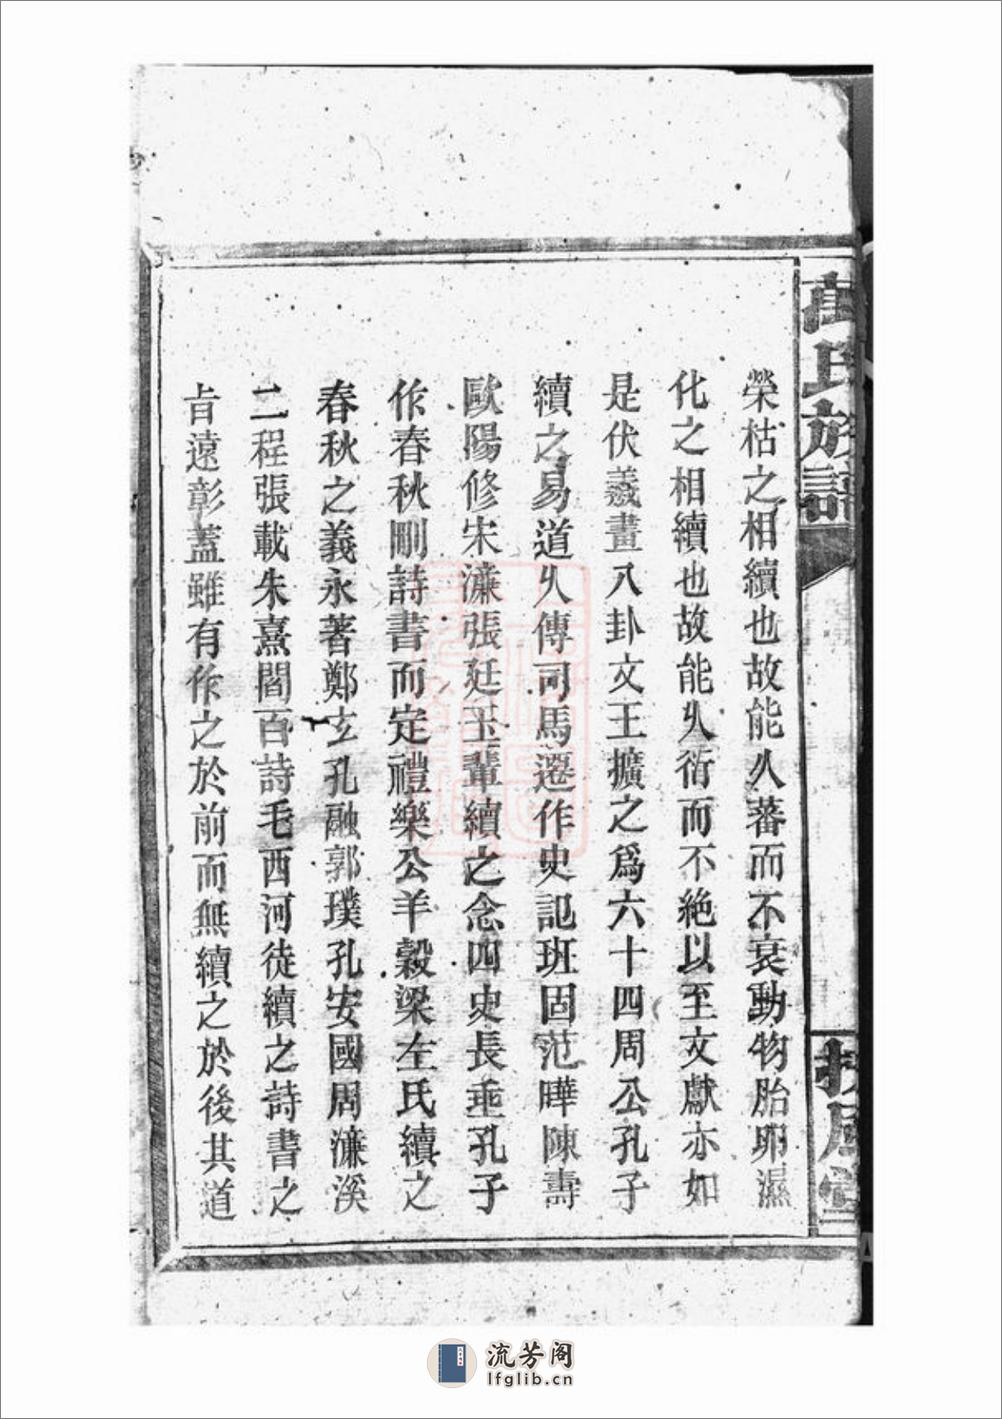 萬氏族譜
扶風堂
榮枯之相續也故能久蕃而不衰動物胎卵濕
化之相續也故能久衍而不絶以至文獻亦如
是伏羲畫八卦文王擴之爲六十四周公孔子
續之易道久傳司馬遷作史記班固范曄陳壽
歐陽修宋濂張廷玉輩續之念四史長垂孔子
作春秋刪詩書而定禮樂公羊穀梁左氏續之
春秋之義永著鄭玄孔融郭璞孔安國周濂溪
二程張載朱熹閻百詩毛西河徒續之詩書之
旨遠彰蓋雖有作之於前而無續之於後其道
流芳阁
lfglib.cn